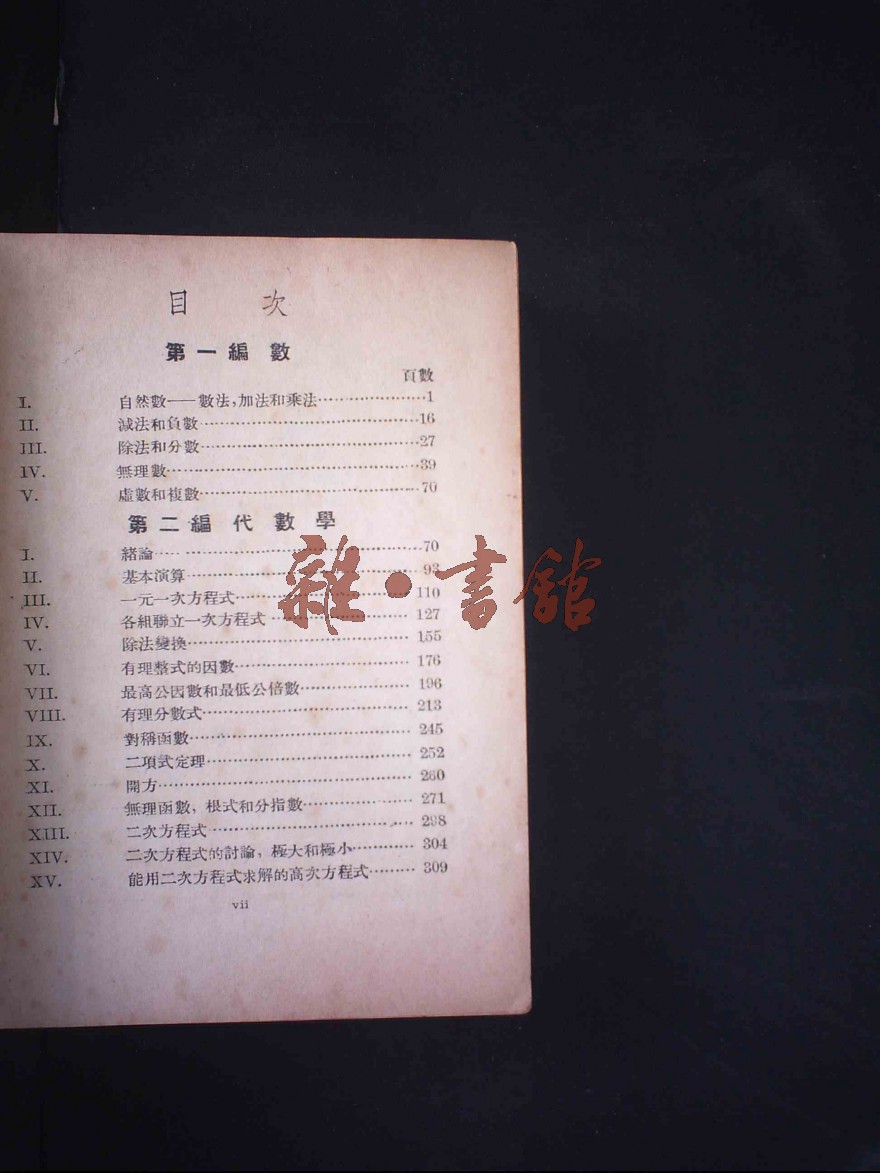 目 次
第一編 數
頁數
I. 自然數——數法,加法和乘法……1
II. 減法和負數……16
III. 除法和分數……27
IV. 無理數……39
V. 虛數和複數……70
第二編 代數學
I. 緒論……70
II. 基本演算……93
III. 一元一次方程式……110
IV. 各組聯立一次方程式……127
V. 除法變換……155
VI. 有理整式的因數……176
VII. 最高公因數和最低公倍數……196
VIII. 有理分數式……213
IX. 對稱函數……245
X. 二項式定理……252
XI. 開方……260
XII. 無理函數, 根式和分指數……271
XIII. 二次方程式……298
XIV. 二次方程式的討論, 極大和極小……304
XV. 能用二次方程式求解的高次方程式……309
vii
雜·書館